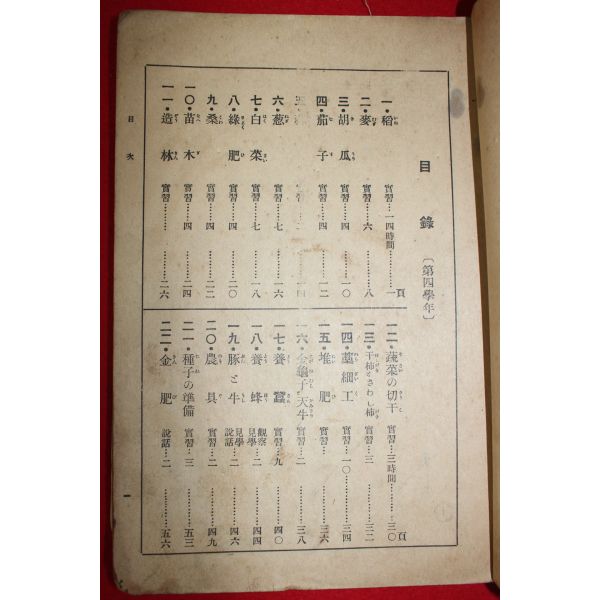 目錄〔第四學年〕
一・稻 實習…一四時間………一頁
二・麥 實習…六………八
三・胡瓜 實習…四………一〇
四・茄子 實習…四………一二
六・葱 實習…七………一六
七・白菜 實習…七………一八
八・綠肥 實習…四………二〇
九・桑 實習…四………二二
一〇・苗木 實習…四………二四
一一・造林 實習…………二六
一二・蔬菜の切干 實習…三時間………三〇頁
一三・干柿とさわし柿 實習…三………三二
一四・藁細工 實習…一〇………三四
一五・堆肥 實習…………三六
一六・金龜子 天牛 實習…二………三八
一七・養蠶 實習…九………四〇
一八・養蜂 觀察見學…二………四四
一九・豚と牛 見學說話…二………四六
二〇・農具 實習…二………四九
二一・種子の準備 實習…二………五三
二二・金肥 說話…二………五六
目次
一